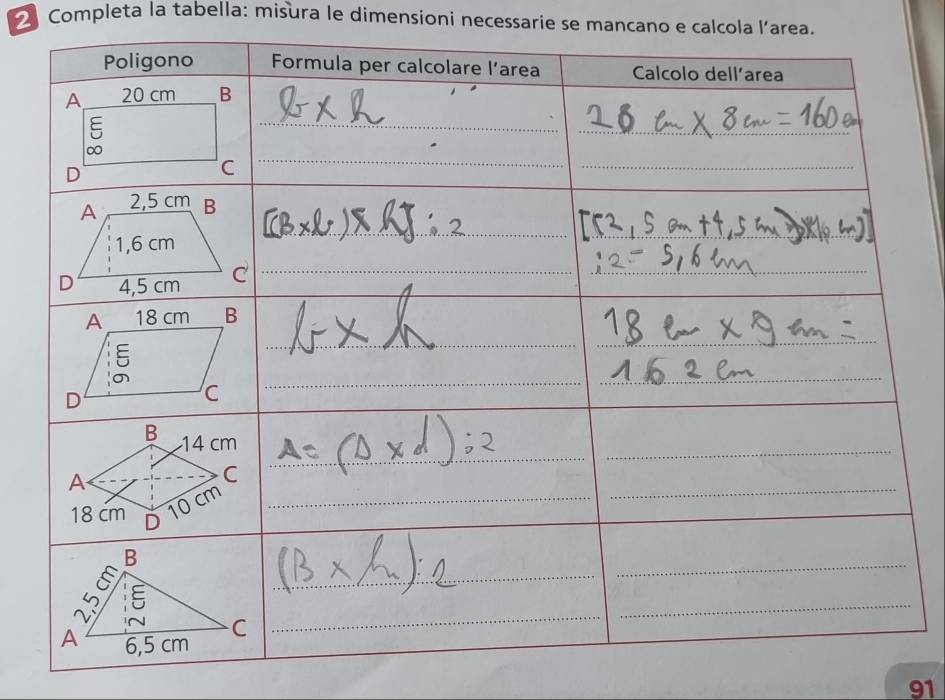 2 Completa la tabella: misura le dimensioni necessarie se mancano e calcola l'area.
Poligono Formula per calcolare l'area Calcolo dell'area
A 20 cm B
8 cm
D C
b x h
28 cm x 8 cm = 160 cm
A 2,5 cm B
1,6 cm
D 4,5 cm C
[(B x b) x h] : 2
[(2,5 cm + 4,5 cm) x 1,6 cm)]
: 2 = 5,6 cm
A 18 cm B
9 cm
D C
b x h
18 cm x 9 cm =
162 cm
B 14 cm
A C
18 cm D 10 cm
A = (D x d) : 2
B
2,5 cm 2 cm
A 6,5 cm C
(B x h) : 2
91